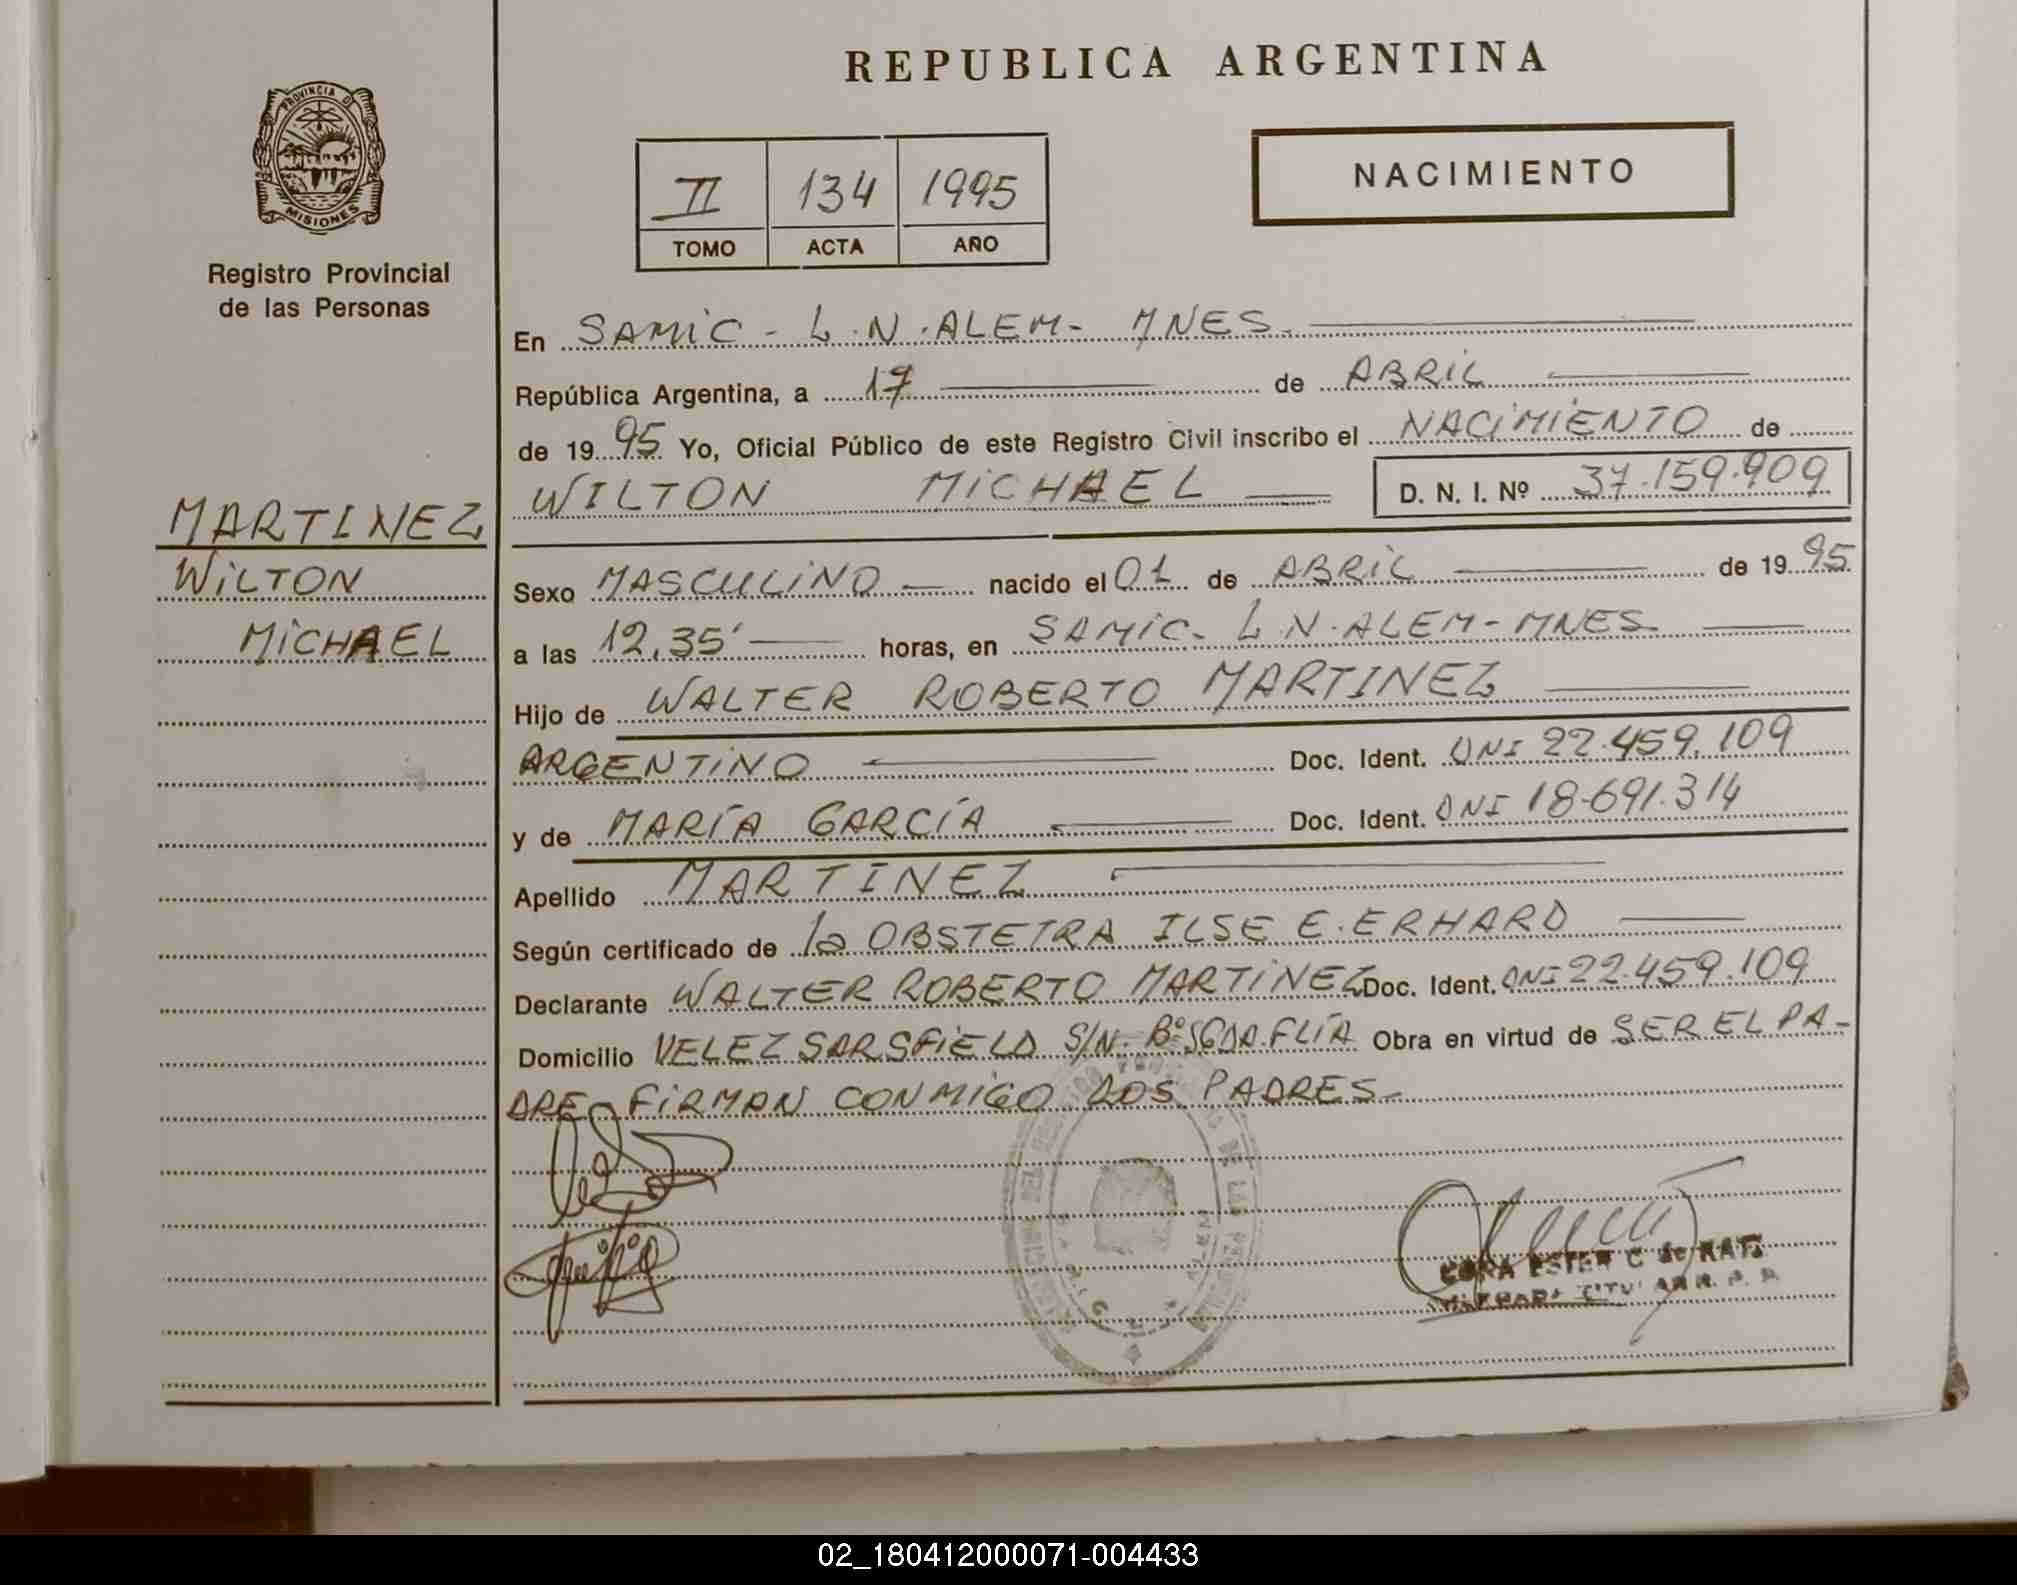 REPUBLICA ARGENTINA
PROVINCIA D
MISIONES
Registro Provincial
de las Personas
II 134 1995
TOMO ACTA AÑO
NACIMIENTO
En SAMIC - L.N. ALEM - MNES.
República Argentina, a 17 de ABRIL
de 1995 Yo, Oficial Público de este Registro Civil inscribo el NACIMIENTO de
WILTON MICHAEL D. N. I. Nº 37.159.909
MARTINEZ
WILTON
MICHAEL
Sexo MASCULINO nacido el 01 de ABRIL de 1995.
a las 12,35' horas, en SAMIC - L.N. ALEM - MNES
Hijo de WALTER ROBERTO MARTINEZ
ARGENTINO Doc. Ident. DNI 22.459.109
y de MARÍA GARCÍA Doc. Ident. DNI 18.691.314
Apellido MARTINEZ
Según certificado de la OBSTETRA ILSE E. ERHARD
Declarante WALTER ROBERTO MARTINEZ Doc. Ident. DNI 22.459.109
Domicilio VELEZ SARSFIELD S/N. Bº SGDA. FLÍA Obra en virtud de SER EL PA-
DRE - FIRMAN CONMIGO LOS PADRES-
ESTER C
02_180412000071-004433